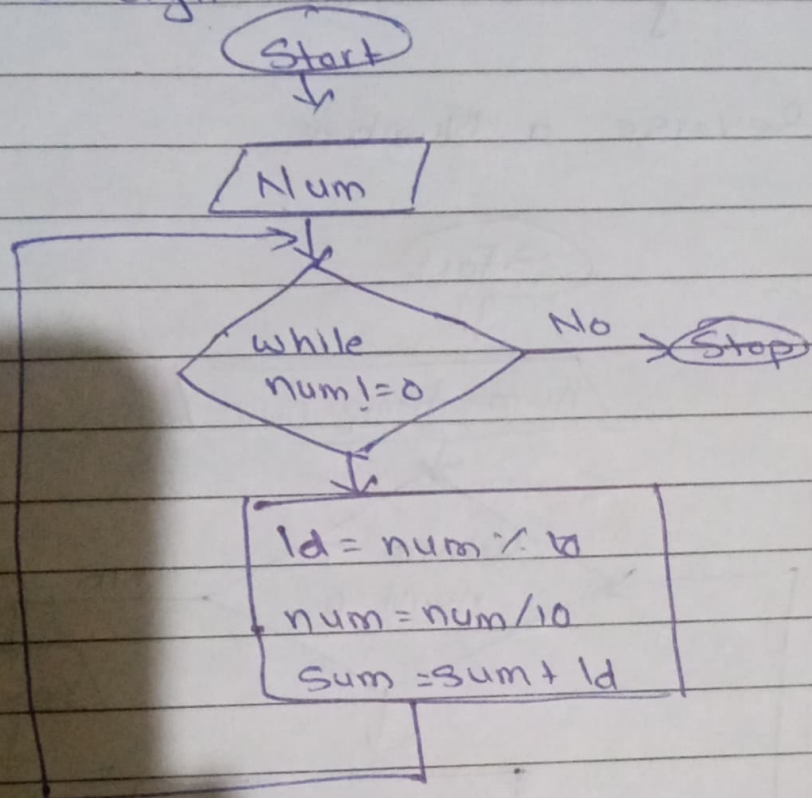 Start
Num
while
num!=0
No
Stop
ld = num % 10
num = num/10
Sum = sum + ld